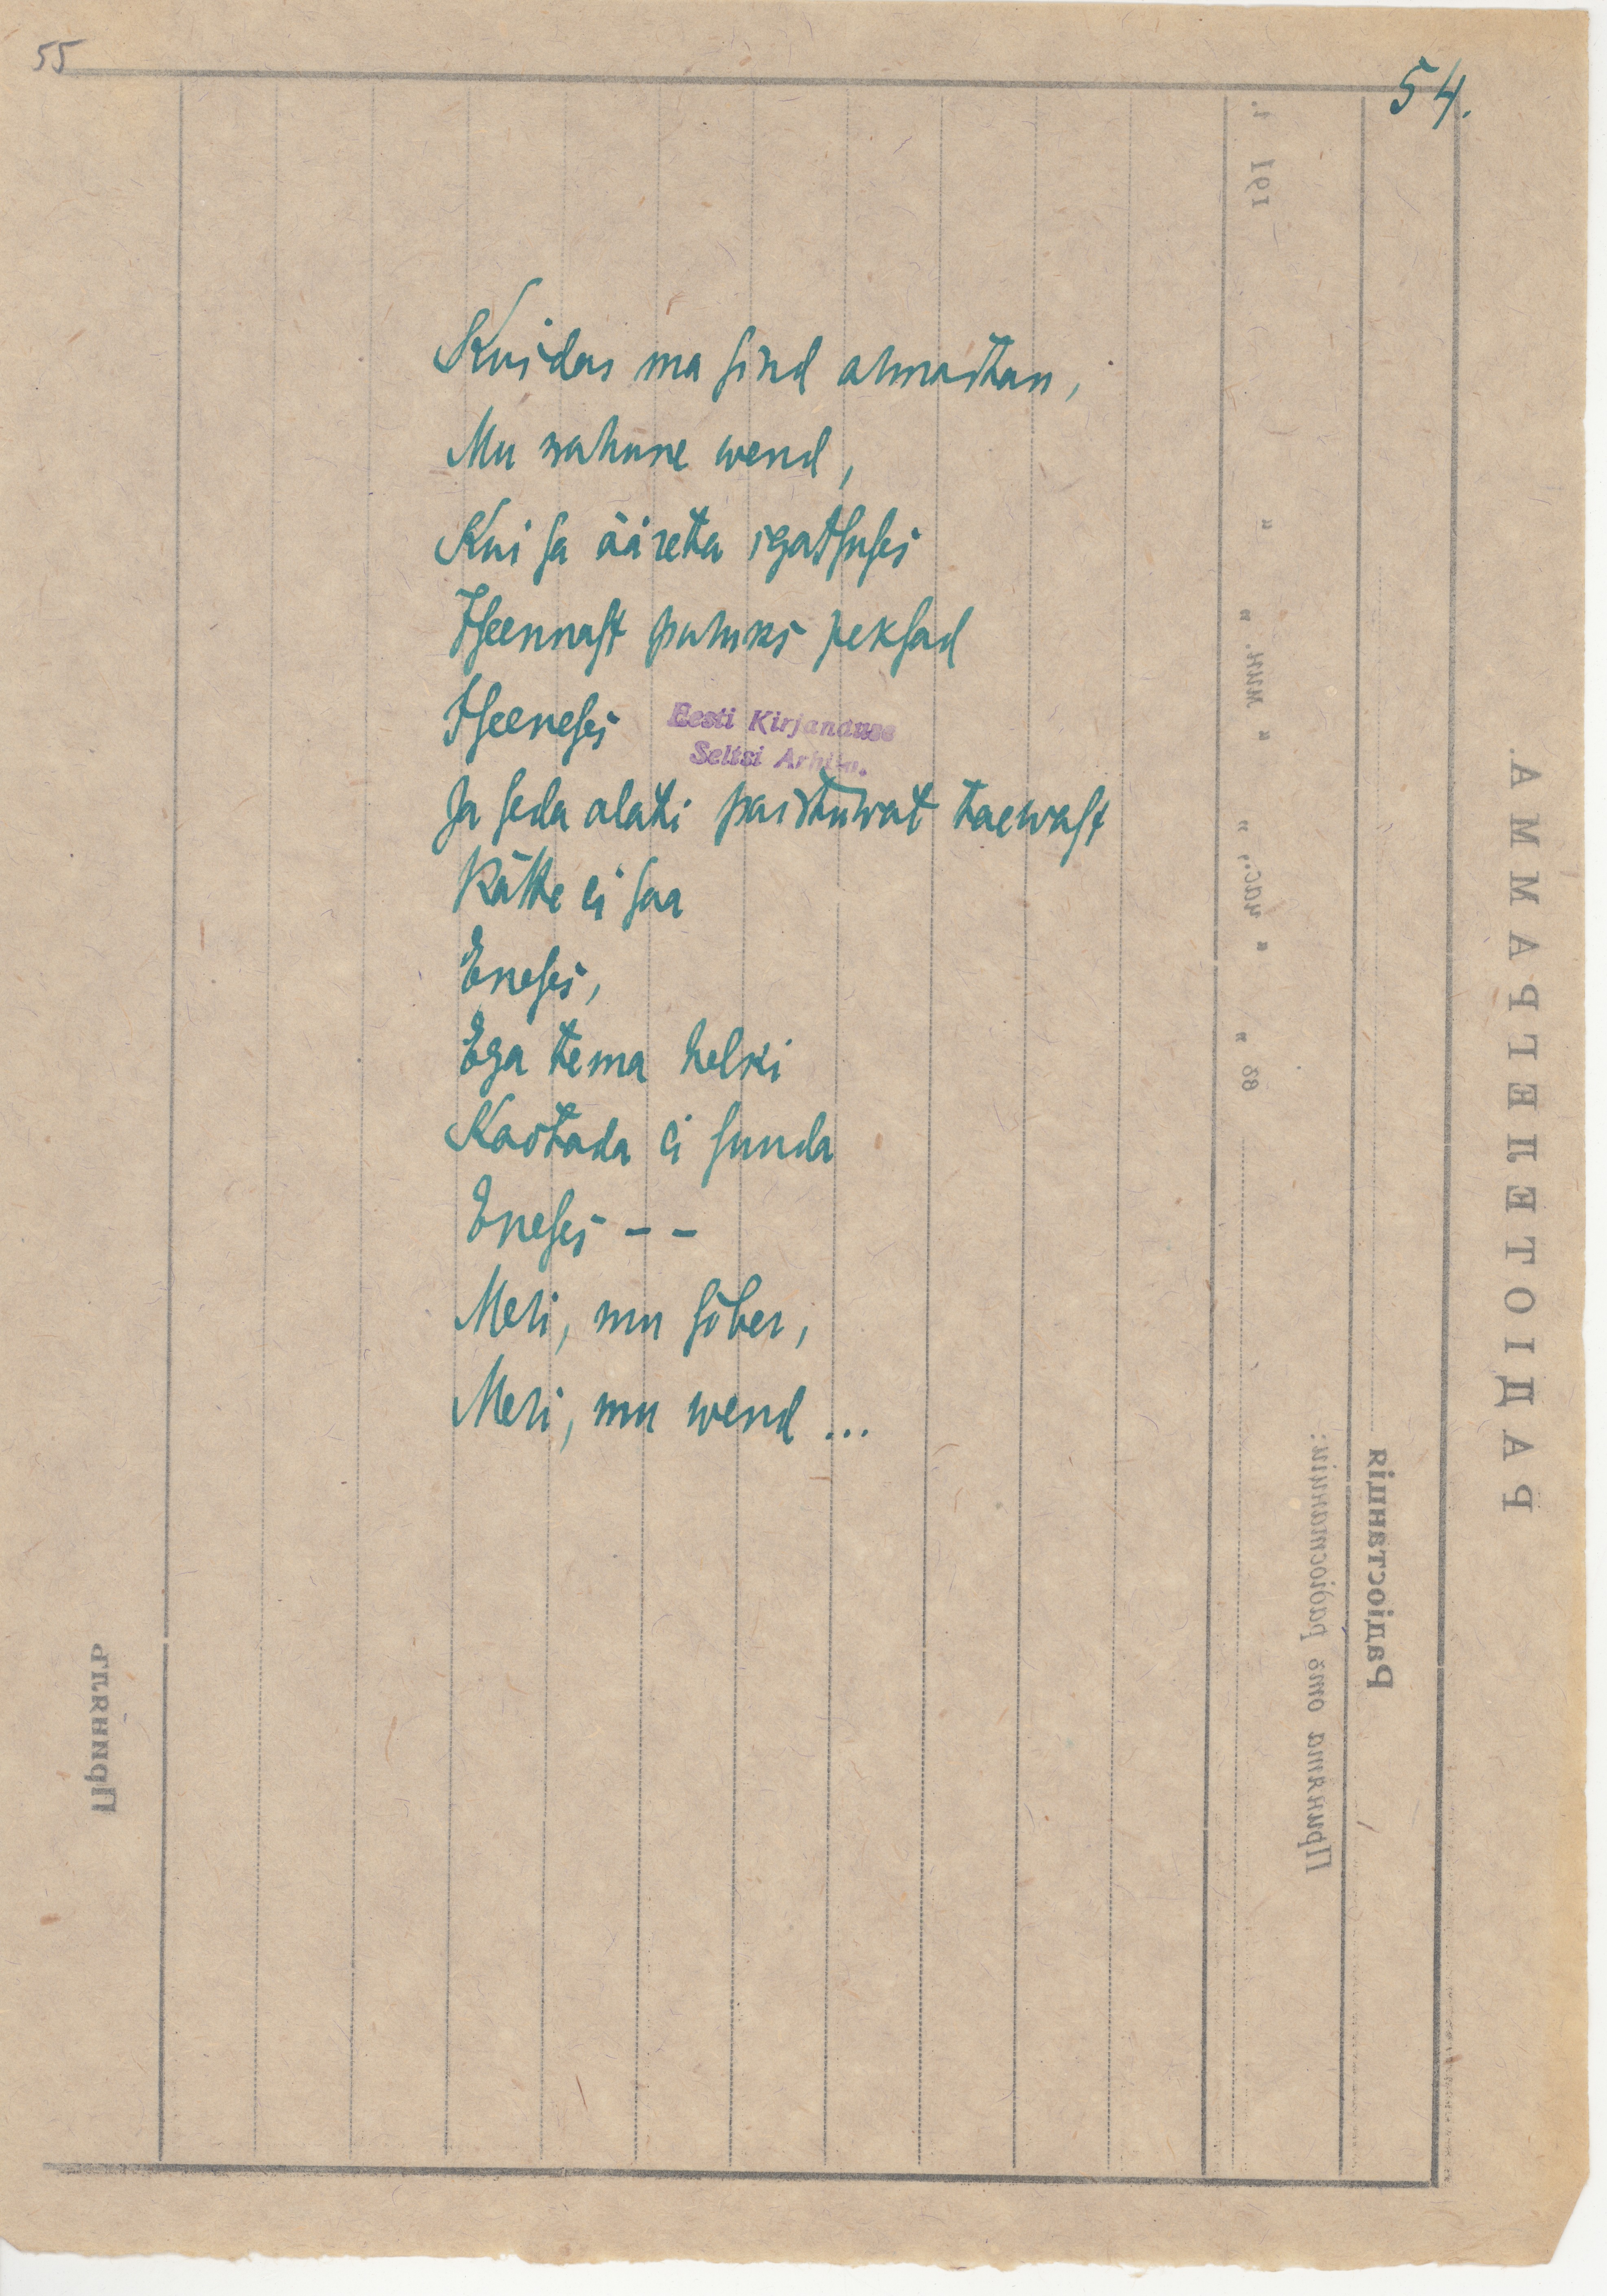 55
54.
Kuidas ma sind armastan,
Mu rahune wend,
Kui sa ääreta igatsuses
Iseennast puruks peksad
Iseeneses
Eesti Kirjanduse
Seltsi Arhiiv.
Ja seda alati paistuwat taewast
Kätte ei saa
Eneses,
Ega tema helki
Kaotada ei suuda
Eneses – –
Meri, mu sõber,
Meri, mu wend ...
РАДІОТЕЛЕГРАММА.
Радіостанція
Принята отъ радіостанціи:
въ „ „ час., „ „ мин. „ „ 191 г.
Принялъ